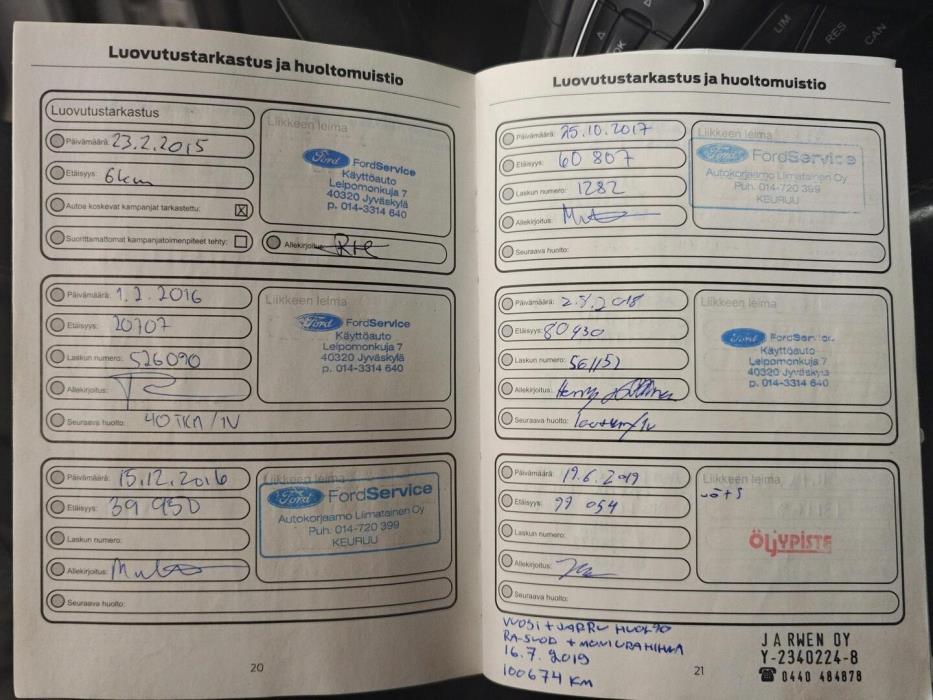 Luovutustarkastus ja huoltomuistio
Luovutustarkastus
Päivämäärä: 23.2.2015
Etäisyys: 6km
Autoa koskevat kampanjat tarkastettu:
Suorittamattomat kampanjatoimenpiteet tehty:
Liikkeen leima
Ford FordService
Käyttöauto
Leipomonkuja 7
40320 Jyväskylä
p. 014-3314 640
Allekirjoitus:
Päivämäärä: 1.2.2016
Etäisyys: 20707
Laskun numero: 526090
Allekirjoitus:
Seuraava huolto: 40 TKM/1V
Liikkeen leima
Ford FordService
Käyttöauto
Leipomonkuja 7
40320 Jyväskylä
p. 014-3314 640
Päivämäärä: 15.12.2016
Etäisyys: 39 950
Laskun numero:
Allekirjoitus:
Seuraava huolto:
Liikkeen leima
Ford FordService
Autokorjaamo Liimatainen Oy
Puh. 014-720 399
KEURUU
20
Luovutustarkastus ja huoltomuistio
Päivämäärä: 25.10.2017
Etäisyys: 60 807
Laskun numero: 1282
Allekirjoitus:
Seuraava huolto:
Liikkeen leima
Ford FordService
Autokorjaamo Liimatainen Oy
Puh. 014-720 399
KEURUU
Päivämäärä: 2.5.2018
Etäisyys: 80930
Laskun numero:
Allekirjoitus:
Seuraava huolto:
Liikkeen leima
Ford FordService
Käyttöauto
Leipomonkuja 7
40320 Jyväskylä
p. 014-3314 640
Päivämäärä: 19.6.2019
Etäisyys: 99 054
Laskun numero:
Allekirjoitus:
Seuraava huolto:
Liikkeen leima
ÖLJYPISTE
VUOSI + JARRU HUOLTO
RA-SUOD + MONIURAHIHNA
16.7.2019
100674 KM
21
JARWEN OY
Y-2340224-8
☎ 0440 484878
LIM
RES
CAN
OK